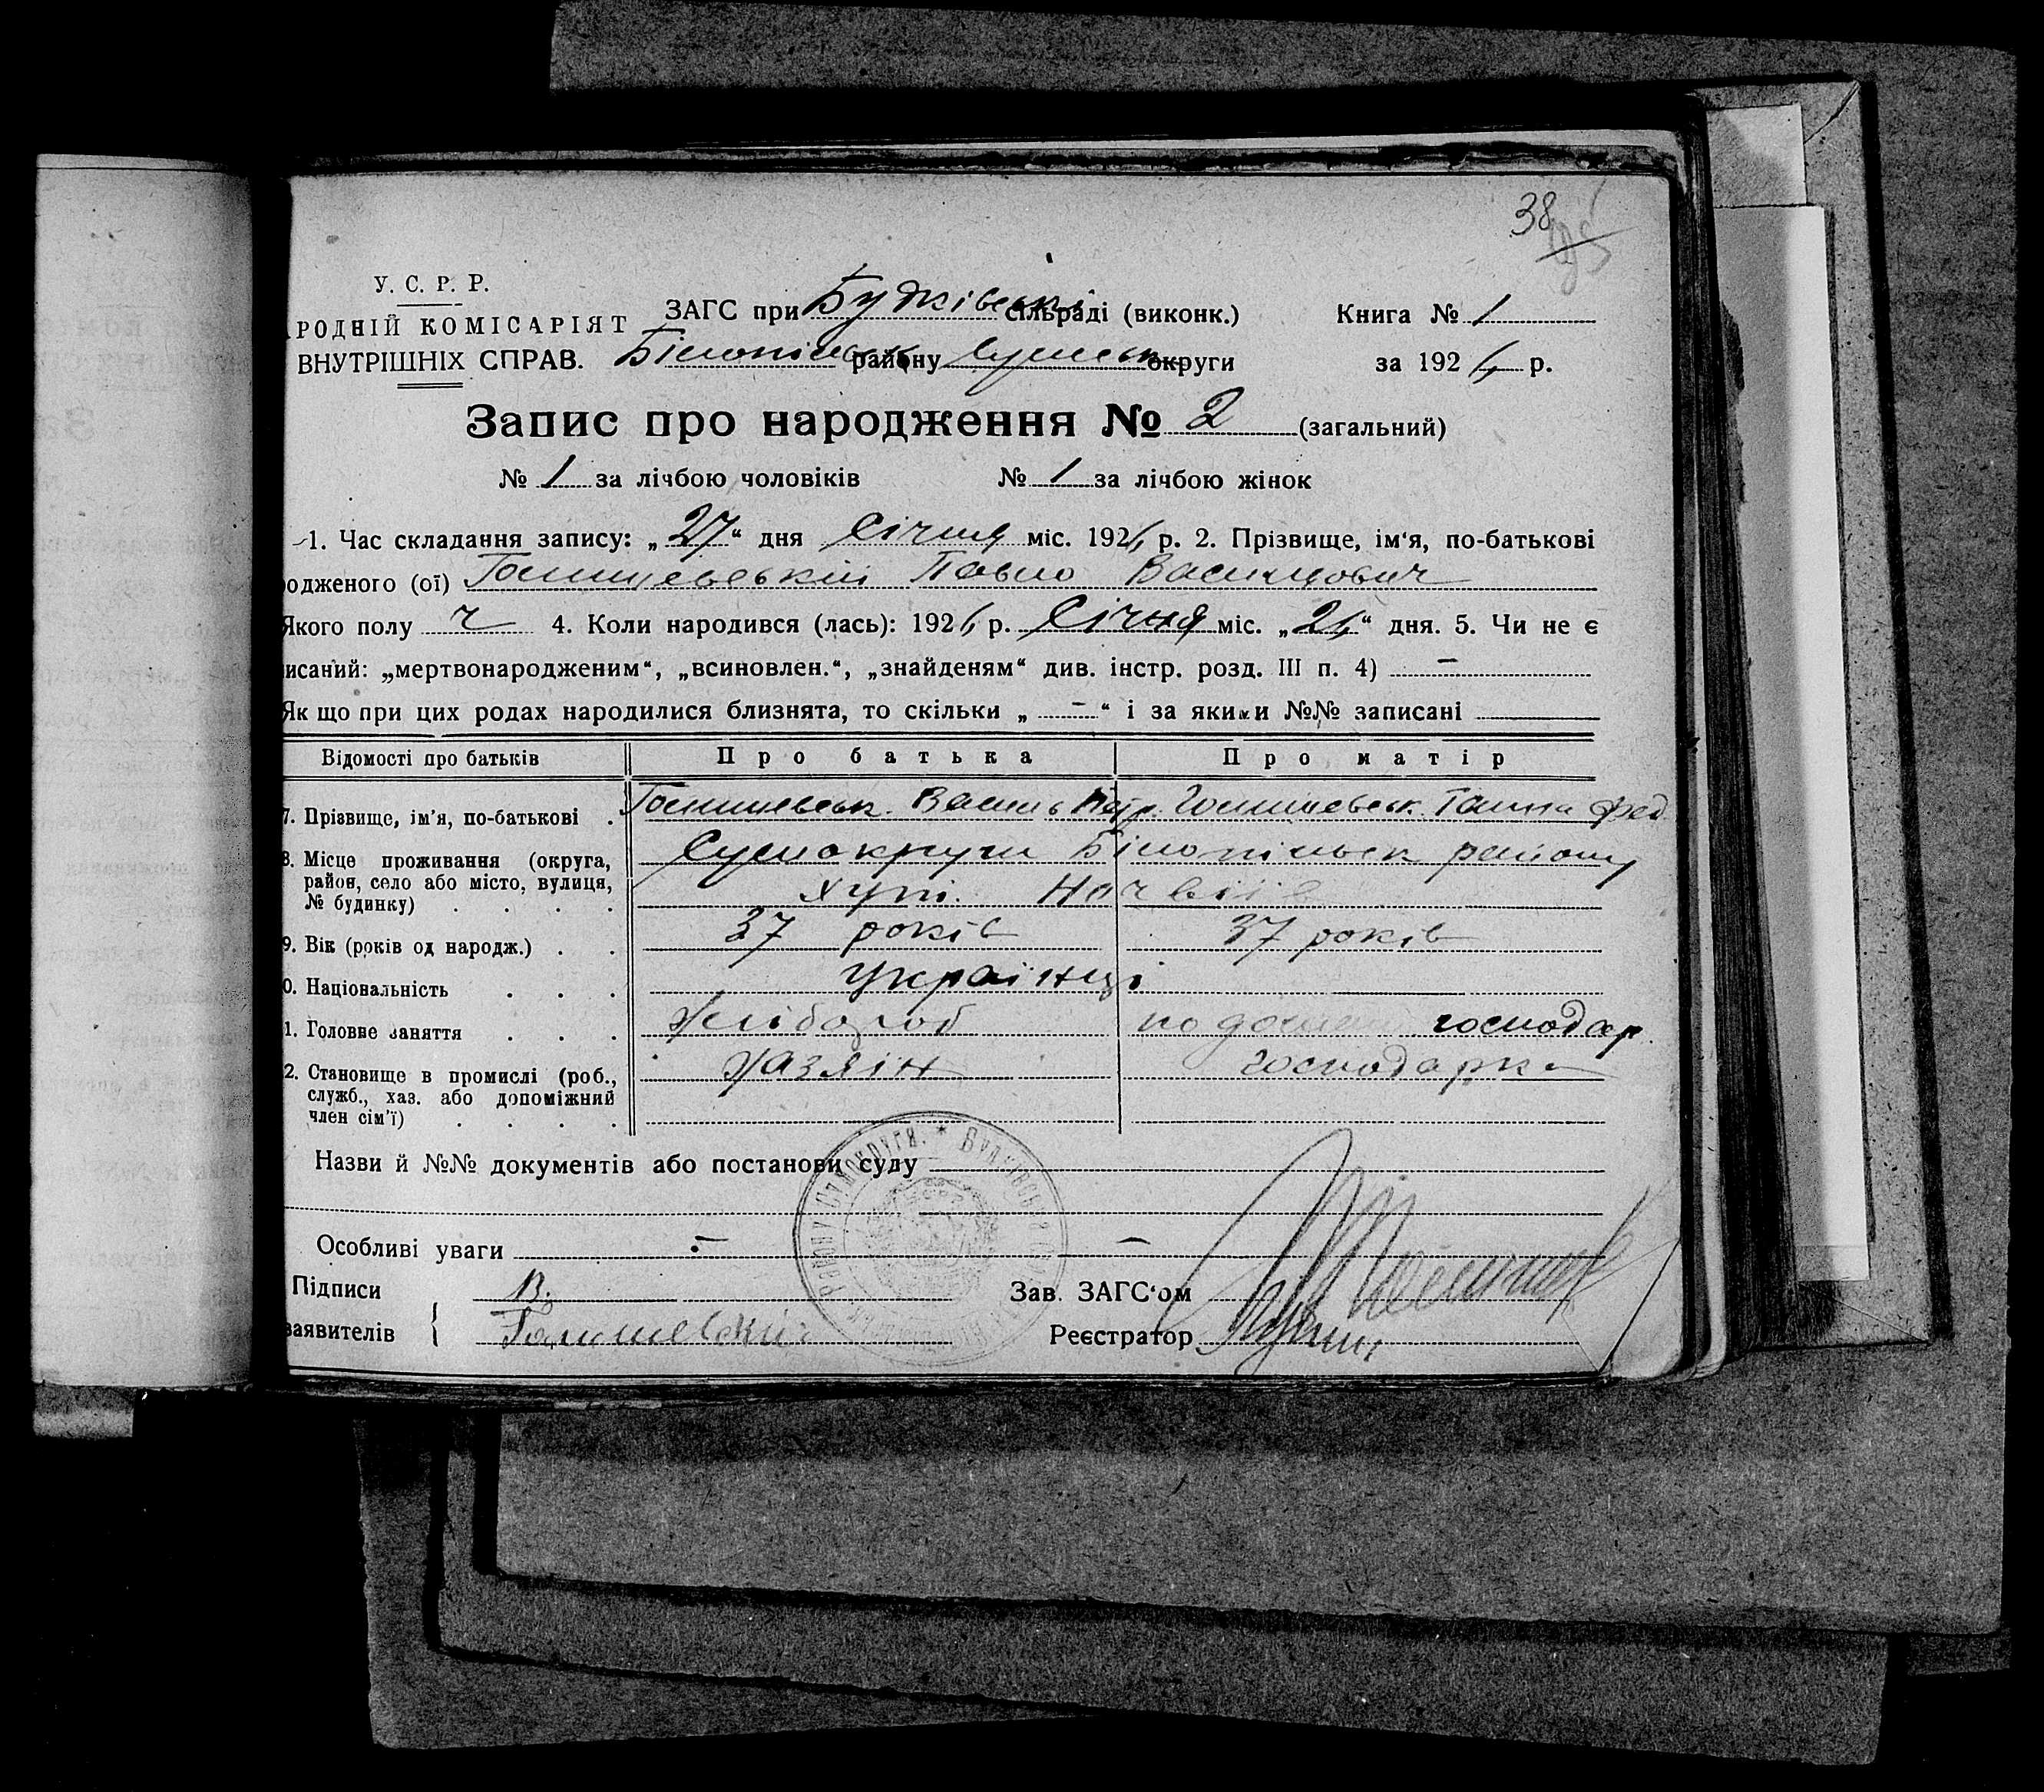 38
У. С. Р. Р.
АРОДНІЙ КОМІСАРІЯТ
ВНУТРІШНІХ СПРАВ.
ЗАГС при Будківські сільраді (виконк.)
Білопільськ району Сумськ округи
Книга № 1
за 1926 р.
Запис про народження № 2 (загальний)
№ 1 за лічбою чоловіків № 1 за лічбою жінок
1. Час складання запису: „27“ дня Січня міс. 1926 р. 2. Прізвище, ім‘я, по-батькові
одженого (ої) Павло Васильович
Якого полу ч 4. Коли народився (лась): 1926 р. Січня міс. „26“ дня. 5. Чи не є
исаний: „мертвонародженим“, „всиновлен.“, „знайденям“ див. інстр. розд. III п. 4) —
Як що при цих родах народилися близнята, то скільки „ - “ і за якими №№ записані
Відомості про батьків Про батька Про матір
7. Прізвище, ім‘я, по-батькові . Василь Петр. Ганна Фед.
8. Місце проживання (округа, район, село або місто, вулиця, № будинку) . . . . Сумокруги Білопільськ району
хут.
9. Вік (років од народж.) . . 37 років 37 років
0. Національність . . . Українці
1. Головне заняття . . . Хлібороб по домашн господар.
2. Становище в промислі (роб., служб., хаз. або допоміжний член сім‘ї) . . . . Хазяін господарка
Назви й №№ документів або постанови суду
Особливі уваги — —
Підписи В. Зав. ЗАГС‘ом
заявителів { Реєстратор